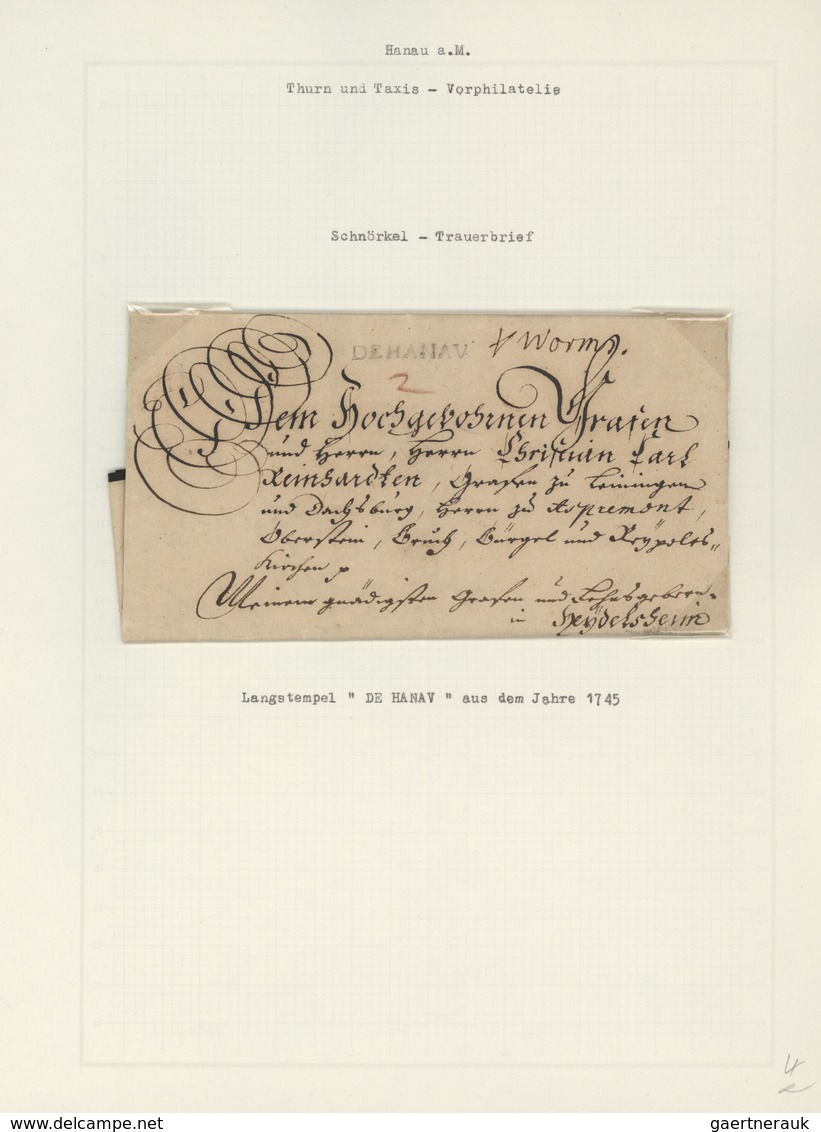 Hanau a.M.
Thurn und Taxis - Vorphilatelie
Schnörkel - Trauerbrief
DE HANAV
p Worms.
2
Dem Hochgebohrnen Grafen
und Herrn, Herrn Christian Carl
Reinhardten, Grafen zu Leiningen
und Dachsburg, Herrn zu Aspremont,
Oberstein, Bruch, Bürgel und Reypolts„
Kirchen p
Meinem gnädigsten Grafen und
in Heÿdelsheim
Langstempel " DE HANAV " aus dem Jahre 1745
4
delcampe.net
gaertnerauk